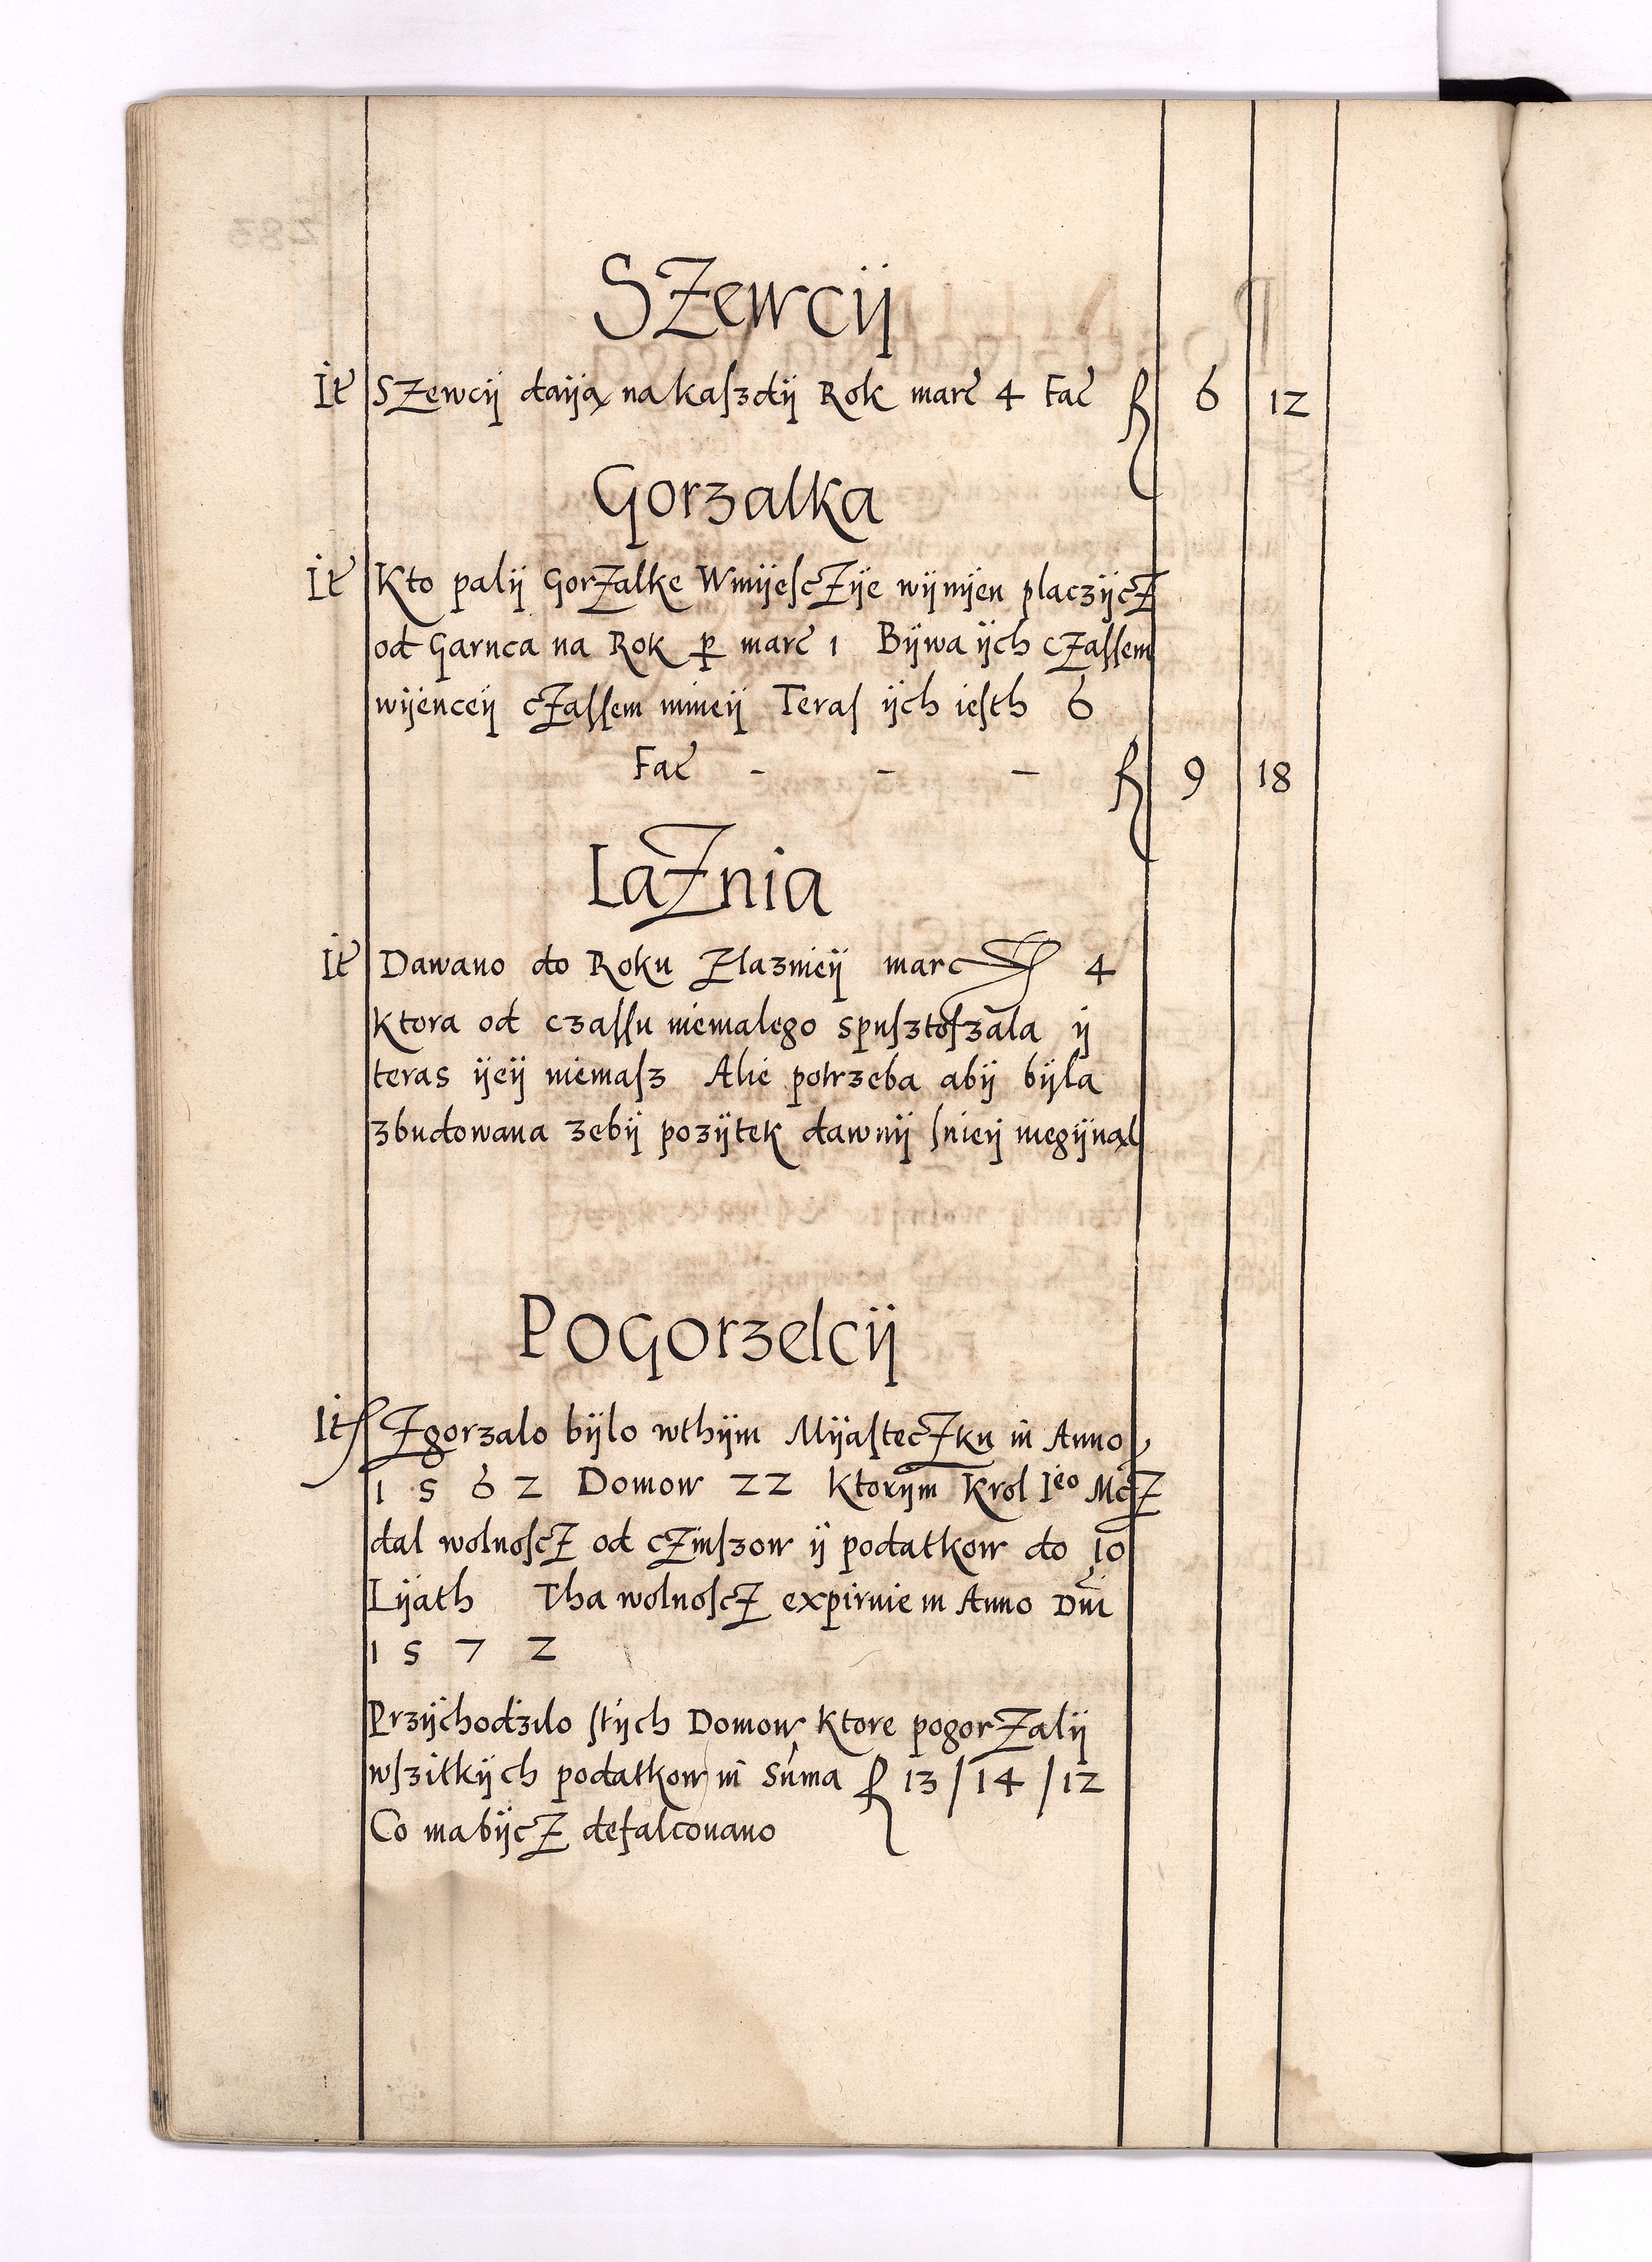 SZewcÿ
It SZewcÿ daÿą na kaſzdÿ Rok marc 4 Fac fl 6 12
Gorzalka
It Kto palÿ GorZalke WmÿeſcZÿe wÿnÿen placzÿcZ
od Garnca na Rok p marc 1 Bÿwa ÿch cZaſſem
wÿenceÿ cZaſſem mnieÿ Teraſ ÿch ieſth 6
Fac - - - fl 9 18
LaZnia
It Dawano do Roku Zlaznieÿ marc 4
Ktora od czaſſu niemalego spuſztoſzala ÿ
teras ÿeÿ niemaſz Alie potrzeba abÿ bÿla
zbudowana zebÿ pozÿtek dawnÿ ſnieÿ niegÿnął
Pogorzelcÿ
It Zgorzalo bÿlo wthÿm MÿaſtecZku in Anno
1 5 6 2 Domow 22 Ktorÿm Krol Ieo McZ
dal wolnoſcZ od cZinſzow ÿ podatkow do 10
Lÿath Tha wolnoſcZ expiruie in Anno Dni
1 5 7 2
Przÿchodzilo ſtÿch Domow Ktore pogorZalÿ
wſzitkÿch podatkow in Suma fl 13/14/12
Co ma bÿcZ defalcouano